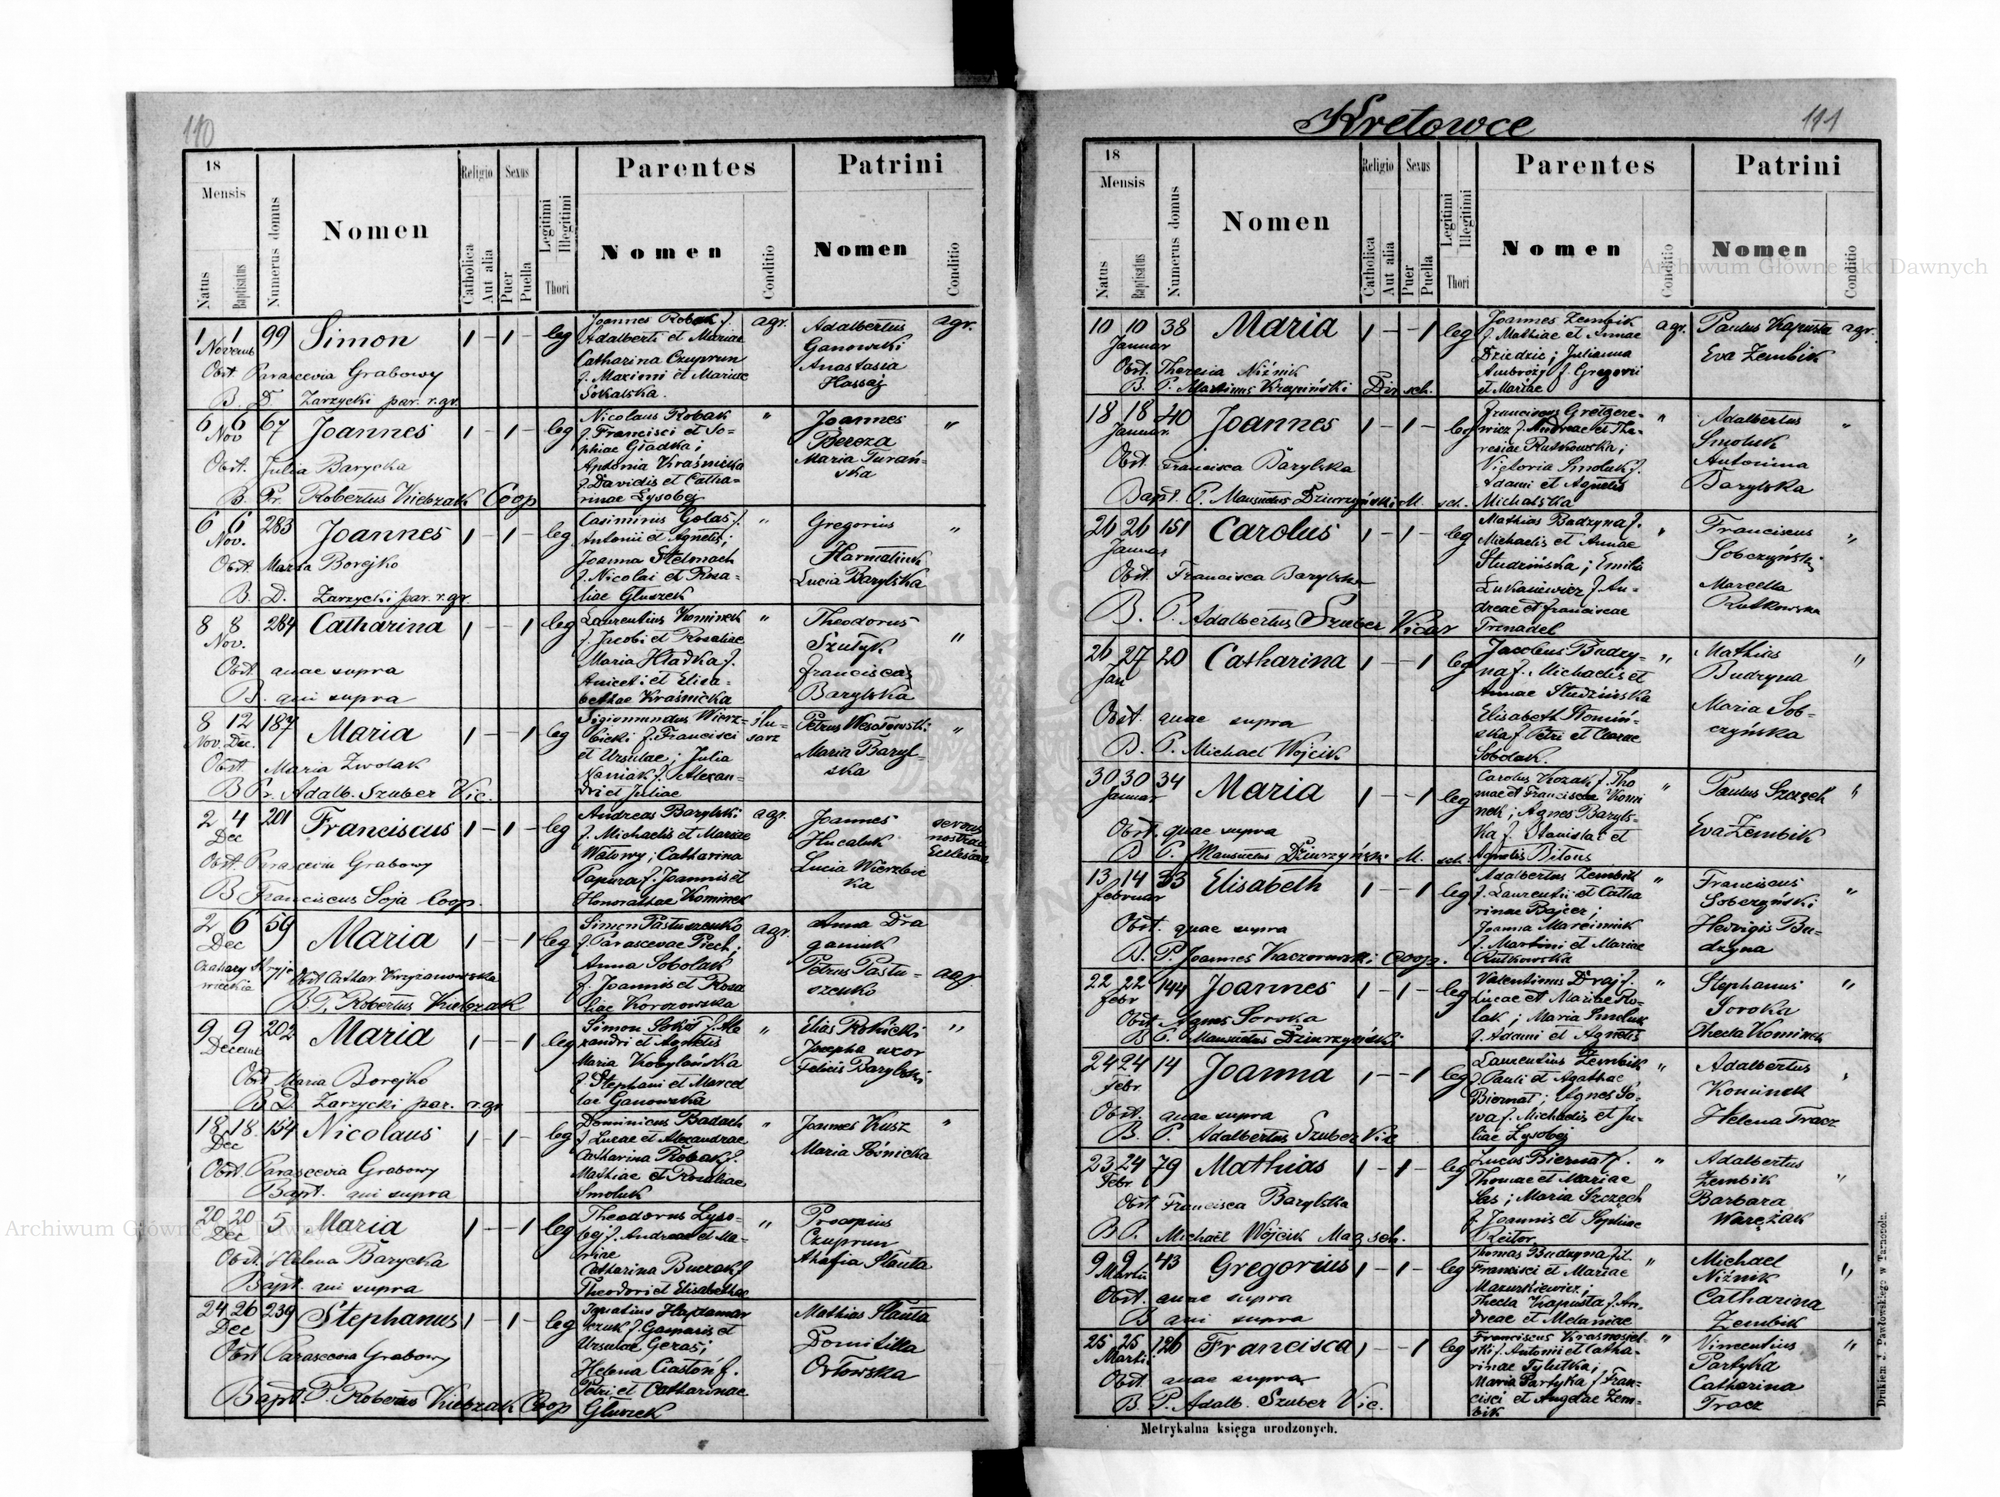 110
18
Mensis
Natus
Baptisatus
Numerus domus
Nomen
Religio
Catholica
Aut alia
Sexus
Puer
Puella
Legitimi
Illegitimi
Thori
Parentes
Nomen
Conditio
Patrini
Nomen
Conditio
1 1 99 Simon 1 – 1 – leg
Novemb
Obst Parascevia Grabowy
B. D. Zarzycki par. r. gr.
Joannes Robak f.
Adalberti et Mariae
Catharina Czuprun
f. Maximi et Mariae
Sokalska.
agr.
Adalbertus
Ganowski
Anastasia
Hassaj
agr.
6 6 67 Joannes 1 – 1 – leg
Nov
Obst. Julia Barycka
B. Pr. Robertus Kiebzak Coop
Nicolaus Robak
f. Francisci et So-
phiae Gładka;
Antonia Kraśnicka
f. Davidis et Catha-
rinae Lysobej
"
Joannes
Bereza
Maria Turań-
ska
"
6 6 283 Joannes 1 – 1 – leg
Nov.
Obst. Maria Borejko
B. D. Zarzycki par. r. gr.
Casimirus Gołaś f.
Antonii et Agnetis;
Joanna Stelmach
f. Nicolai et Rosa-
liae Gluszek
"
Gregorius
Harmatiuk
Lucia Barylska
"
8 8 284 Catharina 1 – – 1 leg
Nov.
Obst. quae supra
B. qui supra
Laurentius Kominek
f. Jacobi et Rosaliae
Maria Hładka f.
Aniceti et Elisa-
bethae Kraśnicka
"
Theodorus
Szutyk
Francisca
Barylska
"
8 12 187 Maria 1 – – 1 leg
Nov. Dec.
Obst. Maria Zwolak
B Pr. Adalb. Szuber Vic.
Sigismundus Wierz-
bicki f. Francisci
et Ursulae; Julia
Naniak f. Alexan-
dri et Juliae
ślu-
sarz
Petrus Wesołowski
Maria Baryl-
ska
"
2 4 201 Franciscus 1 – 1 – leg
Dec
Obst. Parascevia Grabowy
B Franciscus Soja Coop.
Andreas Barylski
f. Michaelis et Mariae
Watowy; Catharina
Papura f. Joannis et
Honorathae Kominek
agr.
Joannes
Hucaluk
Lucia Wierzbic
ka
servus
nostrae
Ecclesiae
2 6 59 Maria 1 – – 1 leg
Dec
Obst Cathar Krzyżanowska
B P. Robertus Kiebzak
Simon Pastuszenko
f. Parascevae Piech;
Anna Sobolak
f. Joannis et Rosa
liae Korozowska
agr.
Anna Dra
ganiuk
Petrus Pastu-
szenko
agr
9 9 202 Maria 1 – – 1 leg
Decemb
Obst Maria Borejko
B. D. Zarzycki par. r. gr
Simon Sokół f. Ale
xandri et Agnetis
Maria Kobylańska
f. Stephani et Marcel
lae Ganowska
"
Elias Rokicki
Josepha uxor
Felicis Barylski
"
18 18 154 Nicolaus 1 – 1 – leg
Dec
Obst Parascevia Grabowy
Bapt. qui supra
Dominicus Badach
f. Lucae et Alexandrae
Catharina Robak f.
Mathiae et Rosaliae
Smoluk
"
Joannes Kusz
Maria Sośnicka
"
20 20 5 Maria 1 – – 1 leg
Dec
Obst. Helena Barycka
Bapt. qui supra
Theodorus Lyso-
bej f. Andreae et Ma-
riae
Catharina Buczak f.
Theodori et Elisabethae
"
Procopius
Czuprun
Ahafia Płauta
24 26 239 Stephanus 1 – 1 – leg
Dec
Obst Parascevia Grabowy
Bapt. P. Robertus Kiebzak Coop
Ignatius Hajdamar
czuk f. Gasparis et
Ursulae Geras;
Helena Ciastoń f.
Petri et Catharinae
Gluszek
Mathias Płauta
Domitilla
Orłowska
Kretowce
111
18
Mensis
Natus
Baptisatus
Numerus domus
Nomen
Religio
Catholica
Aut alia
Sexus
Puer
Puella
Legitimi
Illegitimi
Thori
Parentes
Nomen
Conditio
Patrini
Nomen
Conditio
10 10 38 Maria 1 – – 1 leg
Januar
Obst. Theresia Niźnik
B. P. Martinus Krapiński Dir. sch.
Joannes Zembik
f. Mathiae et Annae
Dziedzic; Julianna
Ambroży f. Gregorii
et Mariae
agr.
Paulus Kapusta
Eva Zembik
agr.
18 18 40 Joannes 1 – 1 – leg
Januar
Obst. Francisca Barylska
Bapt. P. Mansuetus Dziurzyński M. sch.
Franciscus Gretgere-
wicz f. Andreae et The-
resiae Rutkowska;
Victoria Smoluk f.
Adami et Agnetis
Michalska
"
Adalbertus
Smoluk
Antonina
Barylska
"
26 26 151 Carolus 1 – 1 – leg
Januar
Obst. Francisca Barylska
B. P. Adalbertus Szuber Vicar
Mathias Budzyna f.
Michaelis et Annae
Studzińska; Emilia
Łukasiewicz f. An-
dreae et Franciscae
Trznadel
"
Franciscus
Sobczyński
Marcella
Rutkowska
"
26 27 20 Catharina 1 – – 1 leg
Jan
Obst. quae supra
B. P. Michael Wojcik
Jacobus Budzy-
na f. Michaelis et
Annae Studzińska
Elisabeth Słomiń-
ska f. Petri et Clarae
Sobolak.
"
Mathias
Budzyna
Maria Sob-
czyńska
"
30 30 34 Maria 1 – – 1 leg
Januar
Obst. quae supra
B P. Mansuetus Dziurzyński M. sch.
Carolus Kozak f. Tho
mae et Franciscae Komi
nek; Agnes Baryls-
ka f. Stanislai et
Agnetis Bitous
"
Paulus Szczęch
Eva Zembik
"
13 14 33 Elisabeth 1 – – 1 leg
Februar
Obst. quae supra
B. P. Joannes Kaczorowski Coop.
Adalbertus Zembik
f. Laurentii et Catha
rinae Bajcer;
Joanna Marciniuk
f. Martini et Mariae
Rutkowska
"
Franciscus
Sobczyński
Hedvigis Bu-
dzyna
"
22 22 144 Joannes 1 – 1 – leg
Febr
Obst. Agnes Soroka
B P. Mansuetus Dziurzyński
Valentinus Draj f.
Lucae et Mariae Ro-
lak; Maria Smoluk
f. Adami et Agnetis
"
Stephanus
Soroka
Thecla Kominek
"
24 24 14 Joanna 1 – – 1 leg
Febr
Obst. quae supra
B. P. Adalbertus Szuber Vic
Laurentius Zembik
f. Pauli et Agathae
Biernat; Agnes So-
wa f. Michaelis et Ju-
liae Lysobej
"
Adalbertus
Kominek
Helena Tracz
"
23 24 79 Mathias 1 – 1 – leg
Febr
Obst Francisca Barylska
B P. Michael Wojcik Mag sch.
Lucas Biernat f.
Thomae et Mariae
Sas; Maria Szczęch
f. Joannis et Sophiae
Reitor.
"
Adalbertus
Zembik
Barbara
Warężak
"
9 9 43 Gregorius 1 – 1 – leg
Martii
Obst. quae supra
B qui supra
Thomas Budzyna fil.
Francisci et Mariae
Mazurkiewicz,
Thecla Kapusta f. An-
dreae et Melaniae
"
Michael
Niźnik
Catharina
Zembik
"
25 25 126 Francisca 1 – – 1 leg
Martii
Obst. quae supra
B. P. Adalb. Szuber Vic.
Franciscus Krasnosiel-
ski f. Antonii et Catha-
rinae Tylutka;
Maria Partyka f. Fran-
cisci et Magdae Zem-
bik
"
Vincentius
Partyka
Catharina
Tracz
"
Metrykalna księga urodzonych.
Drukiem J. Pawłowskiego w Tarnopolu.
Archiwum Główne Akt Dawnych
Archiwum Główne Akt Dawnych